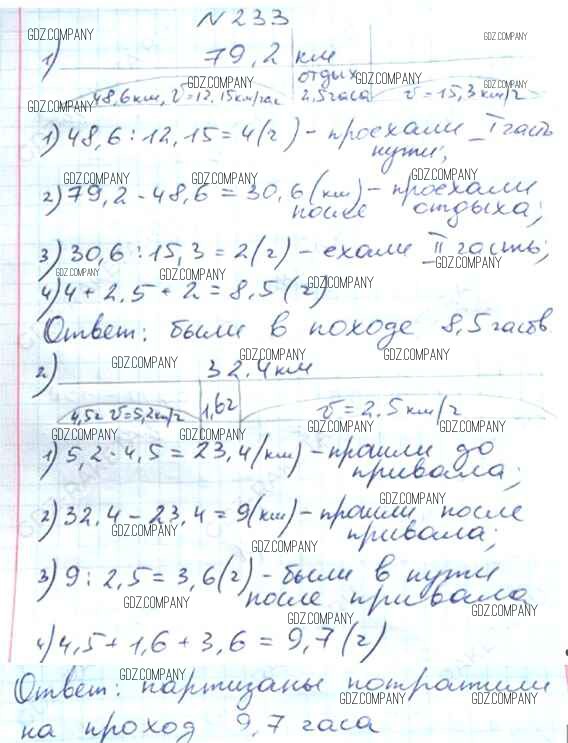 N 233
GDZ.COMPANY GDZ.COMPANY
1) 79,2 км
отдых
GDZ.COMPANY GDZ.COMPANY
48,6км, v=12,15км/час 2,5 часа v=15,3км/ч
GDZ.COMPANY
1) 48,6 : 12,15 = 4(ч) - проехали I часть
пути;
GDZ.COMPANY GDZ.COMPANY GDZ.COMPANY
2) 79,2 - 48,6 = 30,6 (км) - проехали
после отдыха;
3) 30,6 : 15,3 = 2(ч) - ехали II часть;
GDZ.COMPANY GDZ.COMPANY GDZ.COMPANY
GDZ.COMPANY
4) 4 + 2,5 + 2 = 8,5 (ч)
Ответ: были в походе 8,5 часов
GDZ.COMPANY GDZ.COMPANY GDZ.COMPANY
2) 32,4км
4,5ч v=5,2км/ч 1,6ч v = 2,5 км/ч
GDZ.COMPANY GDZ.COMPANY GDZ.COMPANY GDZ.COMPANY
1) 5,2 · 4,5 = 23,4 (км) - прошли до
привала;
GDZ.COMPANY
2) 32,4 - 23,4 = 9(км) - прошли после
GDZ.COMPANY
привала;
GDZ.COMPANY
3) 9 : 2,5 = 3,6(ч) - были в пути
после привала
GDZ.COMPANY GDZ.COMPANY
4) 4,5 + 1,6 + 3,6 = 9,7 (ч)
GDZ.COMPANY
Ответ: партизаны потратили
GDZ.COMPANY GDZ.COMPANY
на проход 9,7 часа
GDZ.COMPANY